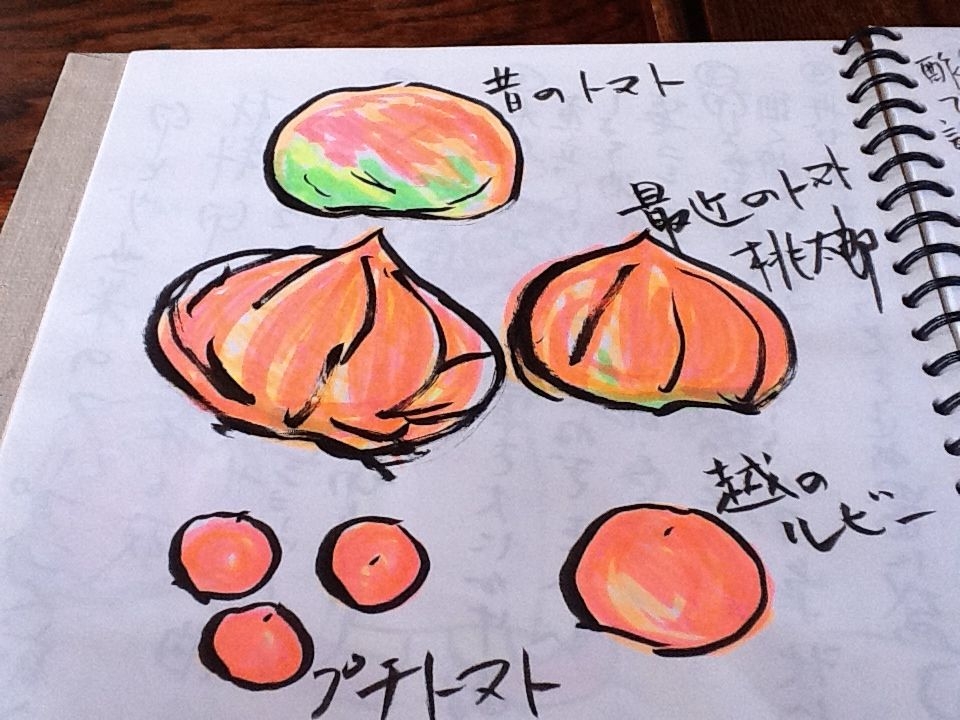 昔のトマト
最近のトマト
桃太郎
越の
ルビー
プチトマト